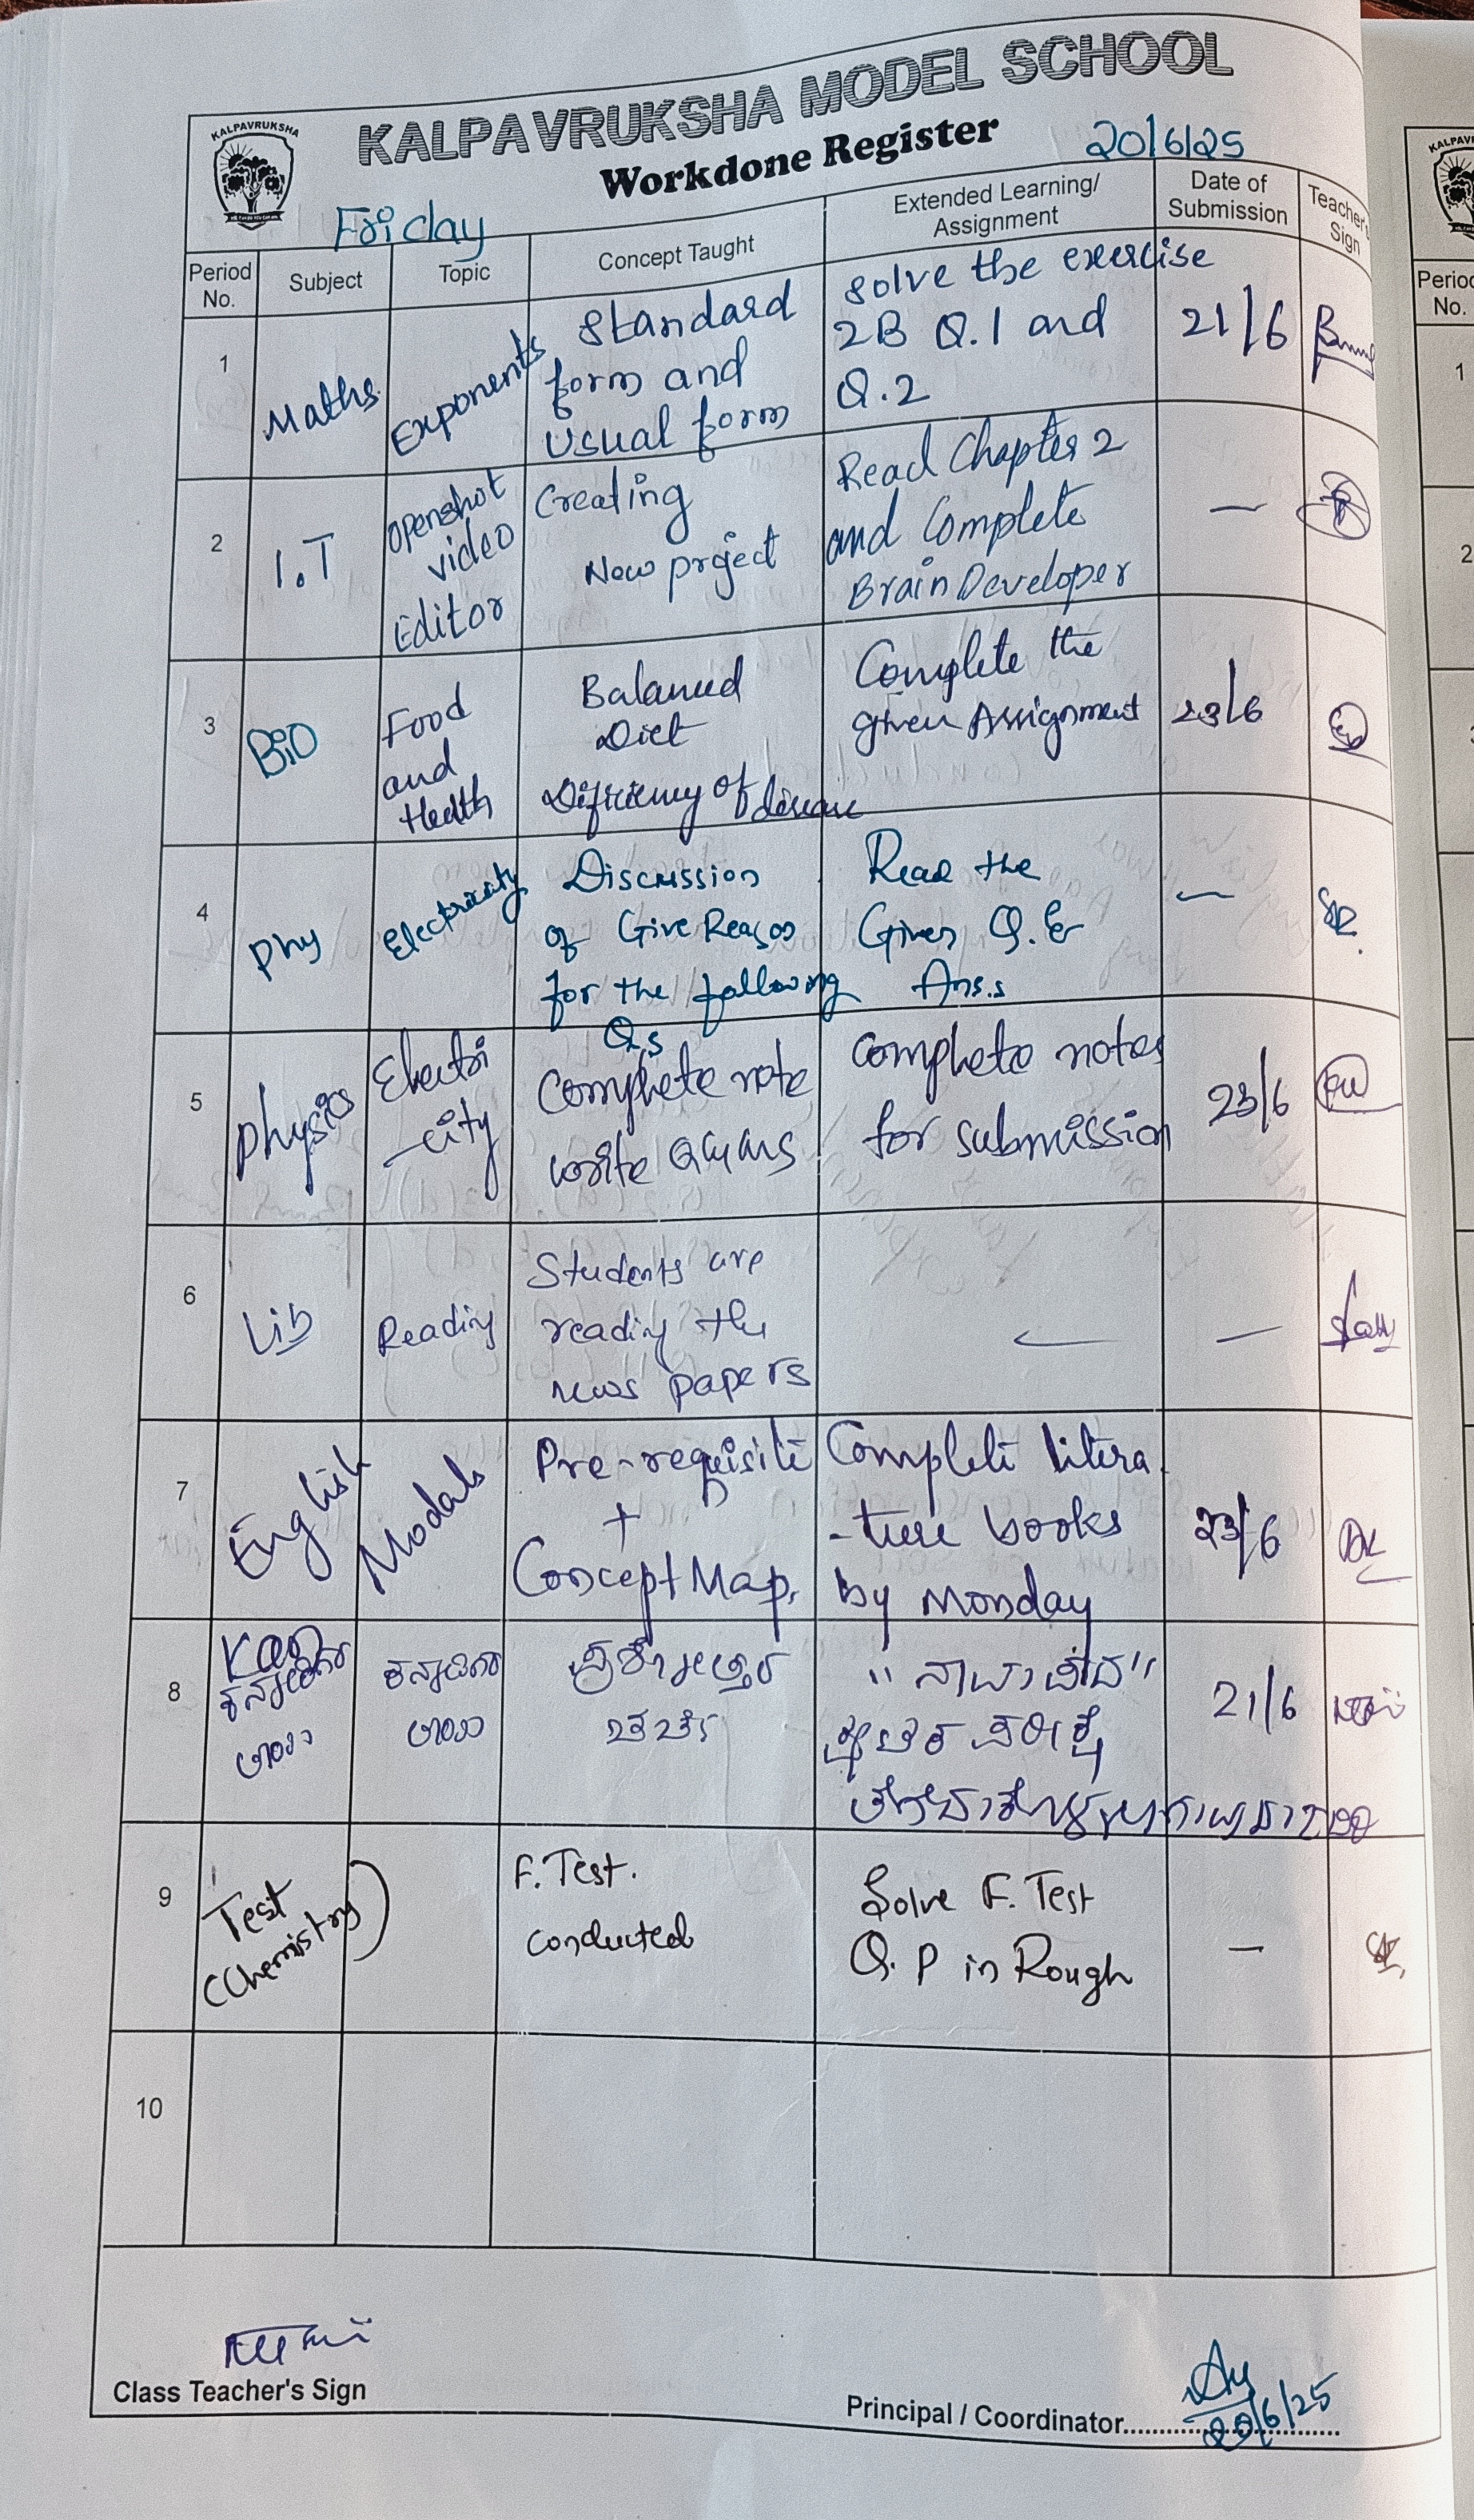 KALPAVRUKSHA MODEL SCHOOL
KALPAVRUKSHA
Workdone Register
20/6/25
Friday
Period No.
Subject
Topic
Concept Taught
Extended Learning/ Assignment
Date of Submission
Teacher's Sign
1
Maths
Exponents
Standard
form and
Usual form
Solve the exercise
2B Q.1 and
Q.2
21/6
2
I.T
Openshot
video
Editor
Creating
New project
Read Chapter 2
and Complete
Brain Developer
—
3
BiO
Food
and
Health
Balanced
Diet
Deficiency of disease
Complete the
given Assignment
23/6
4
Phy
Electricity
Discussion
of Give Reason
for the following
Q.s
Read the
Given Q. &
Ans.s
—
5
Physics
Electri
-city
Complete note
write
complete notes
for submission
23/6
6
Lib
Reading
Students are
reading the
news papers
—
—
7
English
Modals
Pre-requisite
+
Concept Map.
Complete litera
-ture books
by Monday
23/6
8
21/6
9
Test
(Chemistry)
F. Test.
conducted
Solve F. Test
Q.P in Rough
—
10
Class Teacher's Sign
Principal / Coordinator
20/6/25
Period
No.
1
2